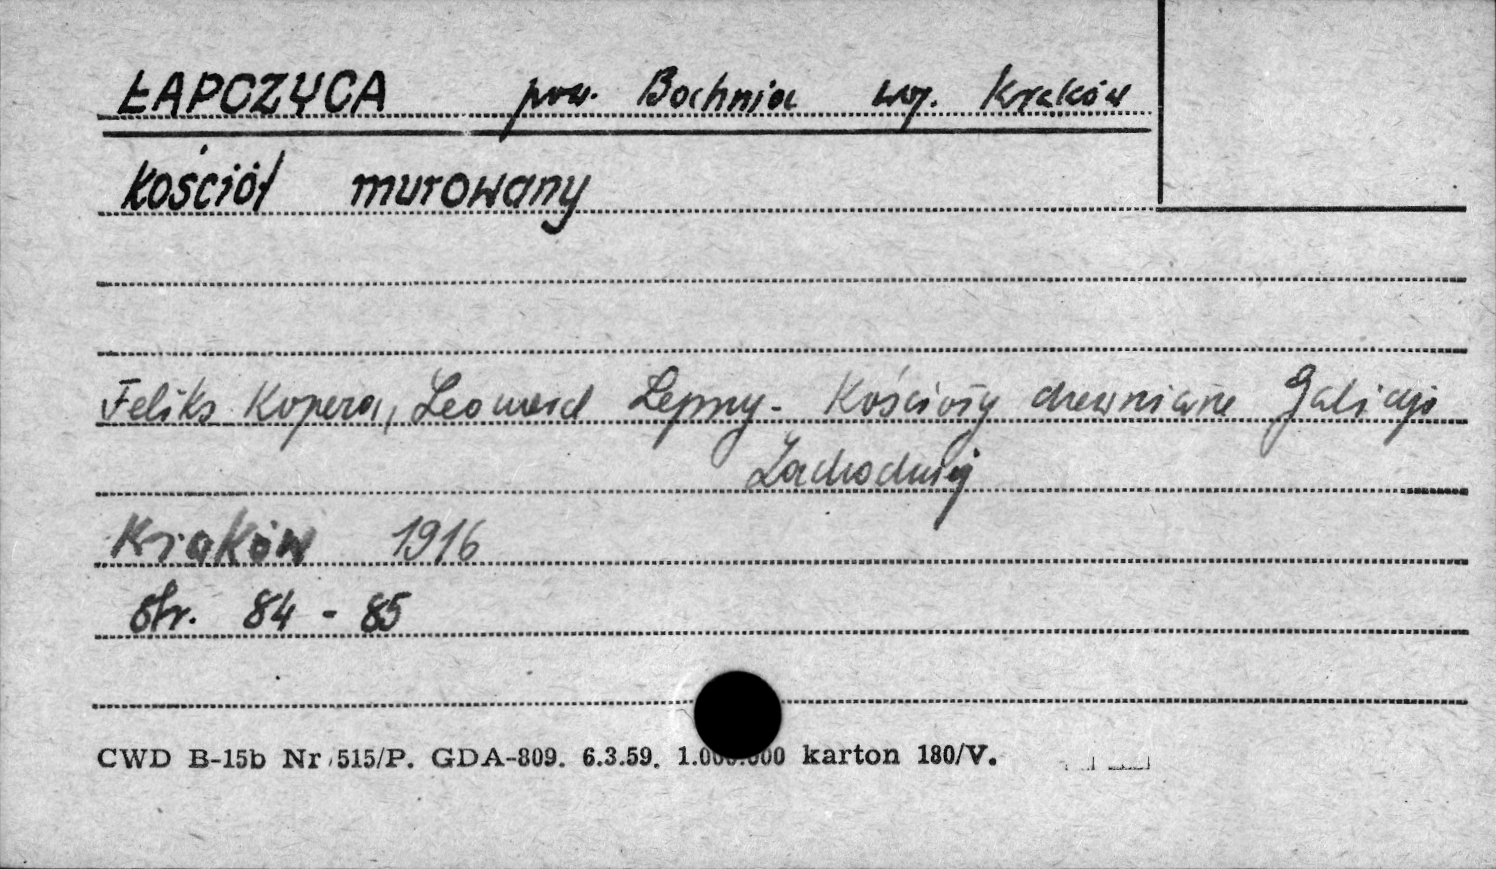 ŁAPCZYCA pow. Bochnia woj. Kraków
Kościół murowany
Feliks Kopera, Leonard Lepszy - Kościoły drewniane Galicji
Zachodniej
Kraków 1916
str. 84 - 85
CWD B-15b Nr 515/P. GDA-809. 6.3.59. 1.000.000 karton 180/V.